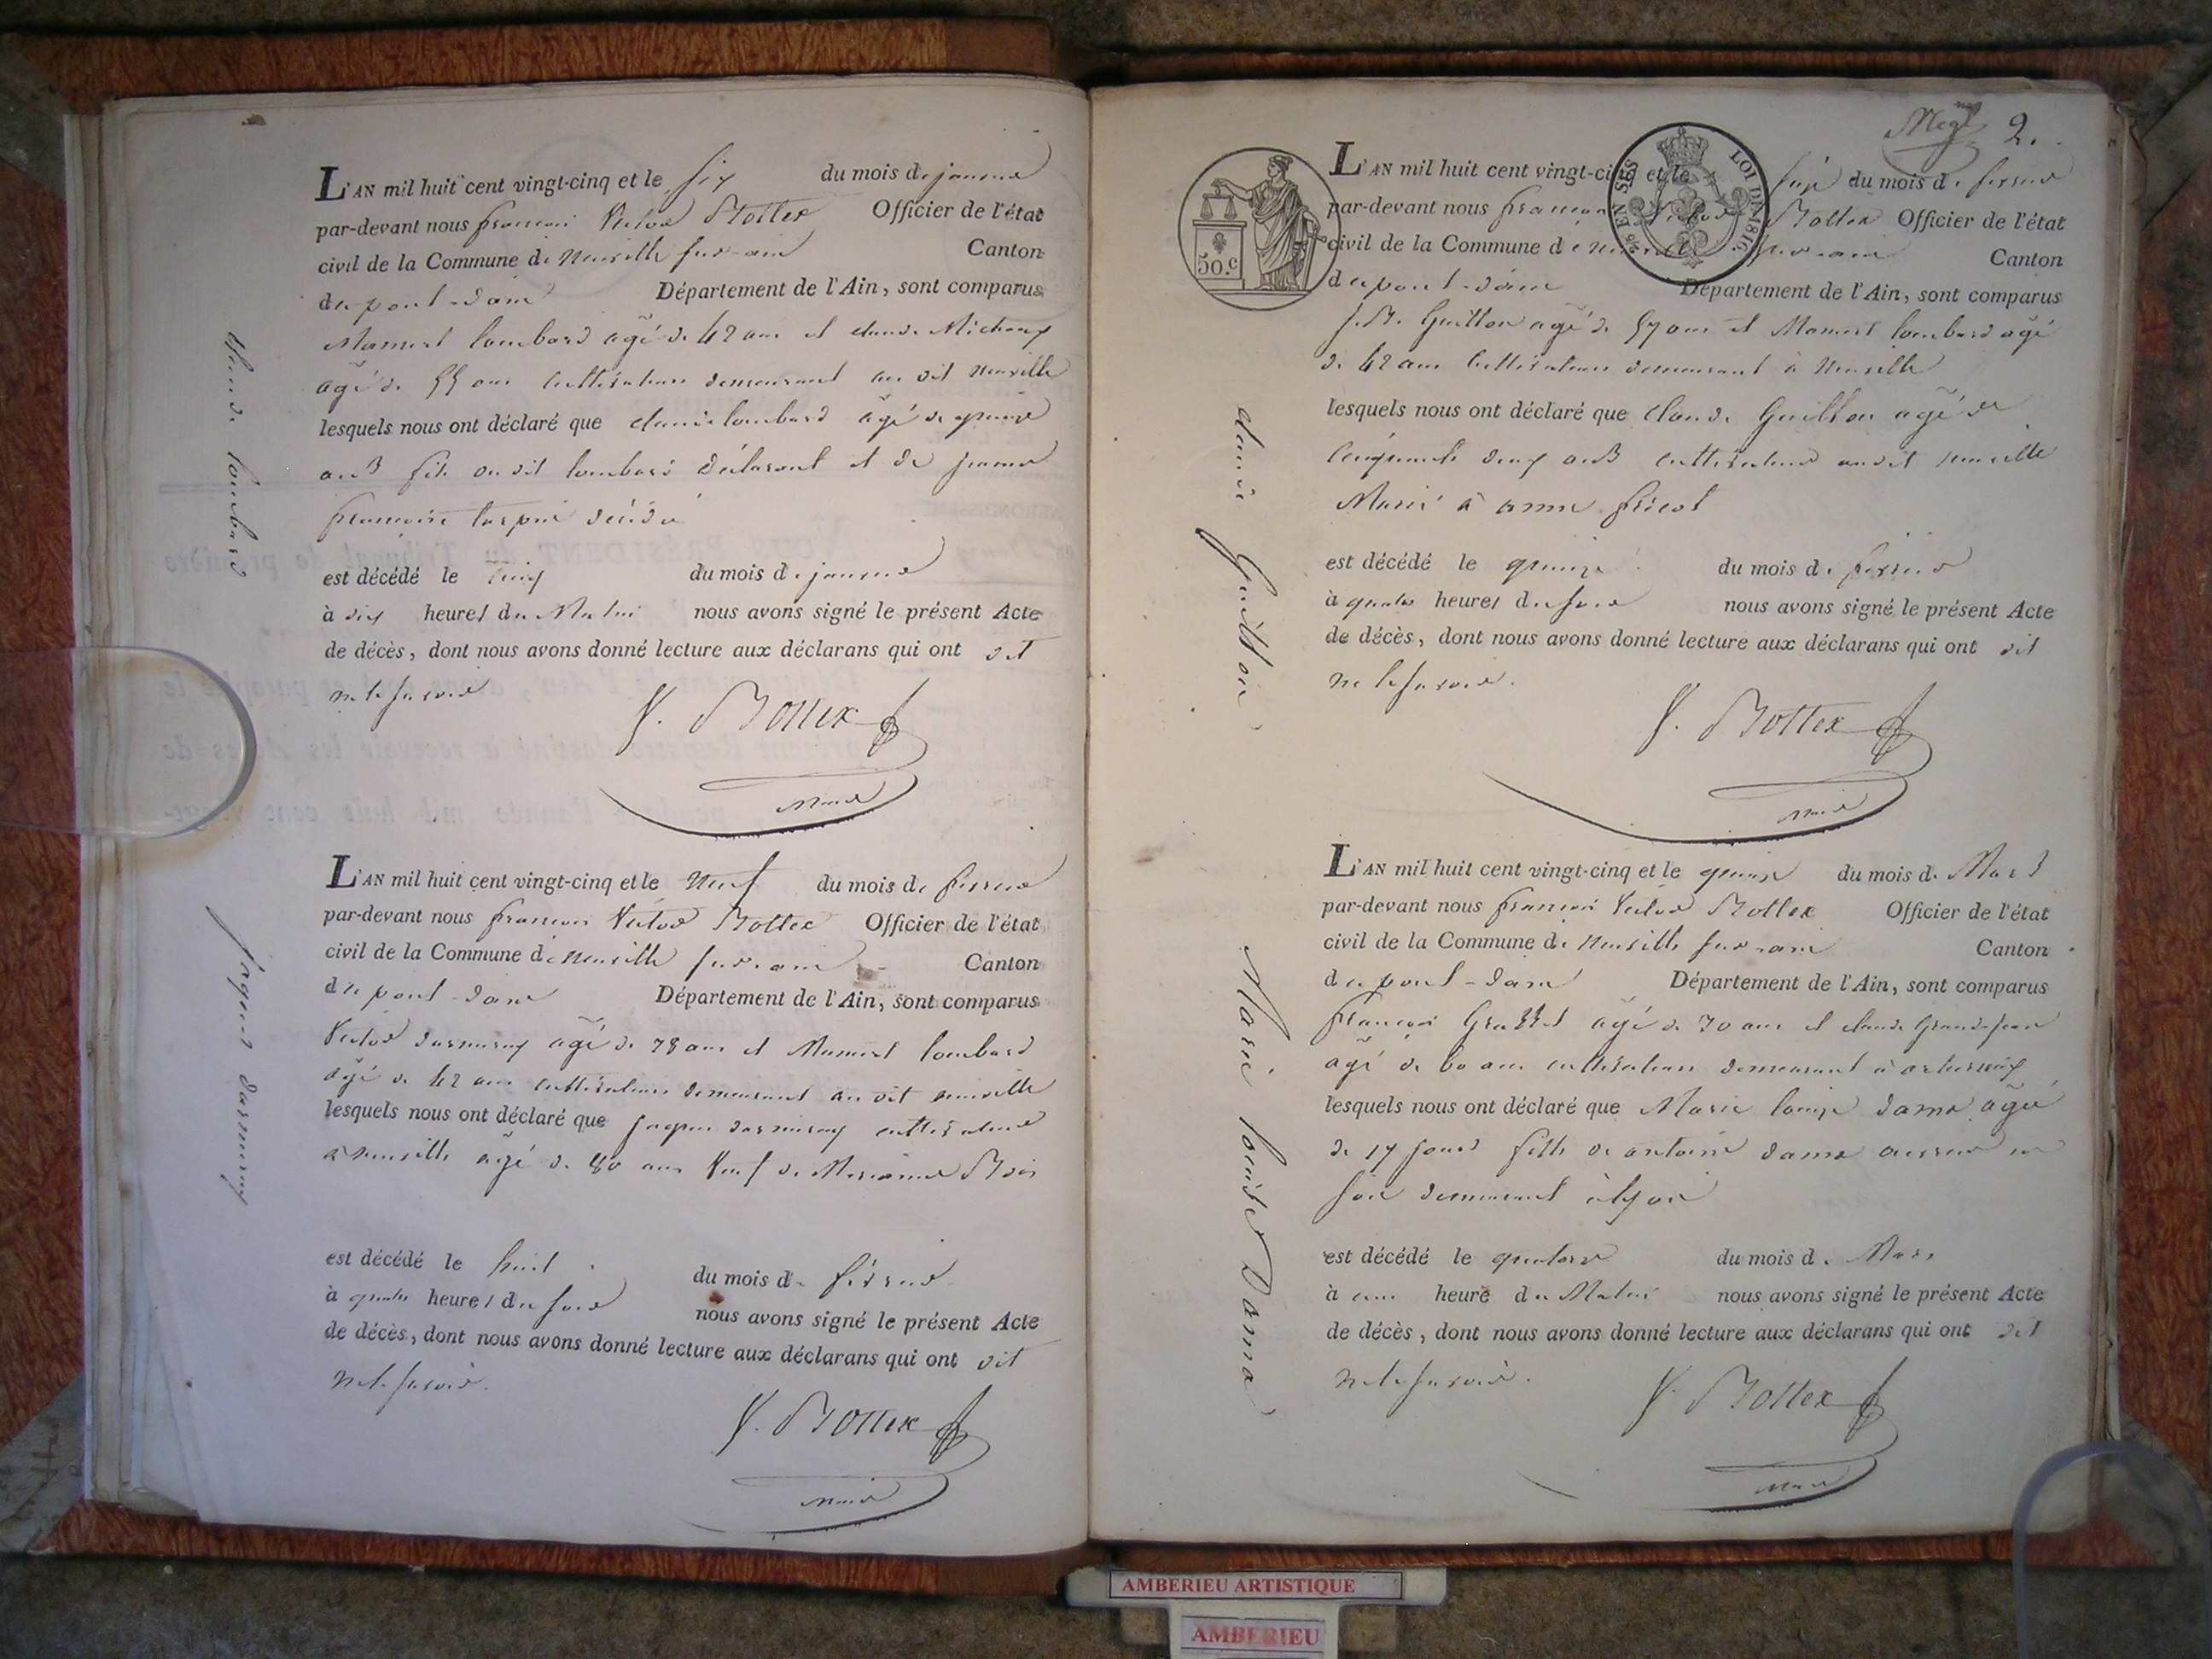 L'AN mil huit cent vingt-cinq et le six du mois de janvier
par-devant nous françois Victor Bottex Officier de l'état
civil de la Commune de Neuville sur-ain Canton
du pont-dain Département de l'Ain, sont comparus
Mamert lombard agé de 42 ans et claude Michaux
agé de 55 ans cultivateurs demeurant au dit neuville
lesquels nous ont déclaré que claude lombard agé de quinze
ans fils du dit lombard déclarant et de jeanne
françoise décédé
est décédé le cinq du mois de janvier
à dix heures du Matin nous avons signé le présent Acte
de décès, dont nous avons donné lecture aux déclarans qui ont dit
ne le savoir
V. Bottex
Maire
claude lombard
L'AN mil huit cent vingt-cinq et le neuf du mois de fevrier
par-devant nous françois Victor Bottex Officier de l'état
civil de la Commune de Neuville sur-ain Canton
du pont-dain Département de l'Ain, sont comparus
Victor darmurey agé de 78 ans et Mamert lombard
agé de 42 ans cultivateurs demeurant au dit neuville
lesquels nous ont déclaré que jaques darmurey cultivateur
à neuville agé de 80 ans Veuf de Marianne
est décédé le huit du mois de févrer
à quatre heures du soir nous avons signé le présent Acte
de décès, dont nous avons donné lecture aux déclarans qui ont dit
ne le savoir.
V. Bottex
Maire
jaques darmurey
2.
50.c
EN SUS
LOI DE 1816
L'AN mil huit cent vingt-cinq et le seize du mois de fevrier
par-devant nous françois Victor Bottex Officier de l'état
civil de la Commune de neuville sur-ain Canton
du pont-dain Département de l'Ain, sont comparus
J. B. Guillon agé de 57 ans et Mamert lombard agé
de 42 ans cultivateurs demeurant à Neuville
lesquels nous ont déclaré que claude Guillon agé de
cinquante deux ans cultivateur audit neuville
Marié à anne fricot
est décédé le quinze du mois de fevrier
à quatre heures du soir nous avons signé le présent Acte
de décès, dont nous avons donné lecture aux déclarans qui ont dit
ne le savoir.
V. Bottex
Maire
claude Guillon
L'AN mil huit cent vingt-cinq et le quinze du mois de Mars
par-devant nous françois Victor Bottex Officier de l'état
civil de la Commune de Neuville sur-ain Canton
du pont-dain Département de l'Ain, sont comparus
françois agé de 70 ans et claude Grand-jean
agé de 60 ans cultivateurs demeurant à
lesquels nous ont déclaré que Marie louise dama agée
de 17 jours fille de antoine dama ouvrier en
soie demeurant à lyon
est décédé le quatorze du mois de Mars
à une heure du Matin nous avons signé le présent Acte
de décès, dont nous avons donné lecture aux déclarans qui ont dit
ne le savoir.
V. Bottex
Maire
Marie louise Dama
AMBERIEU ARTISTIQUE
AMBERIEU